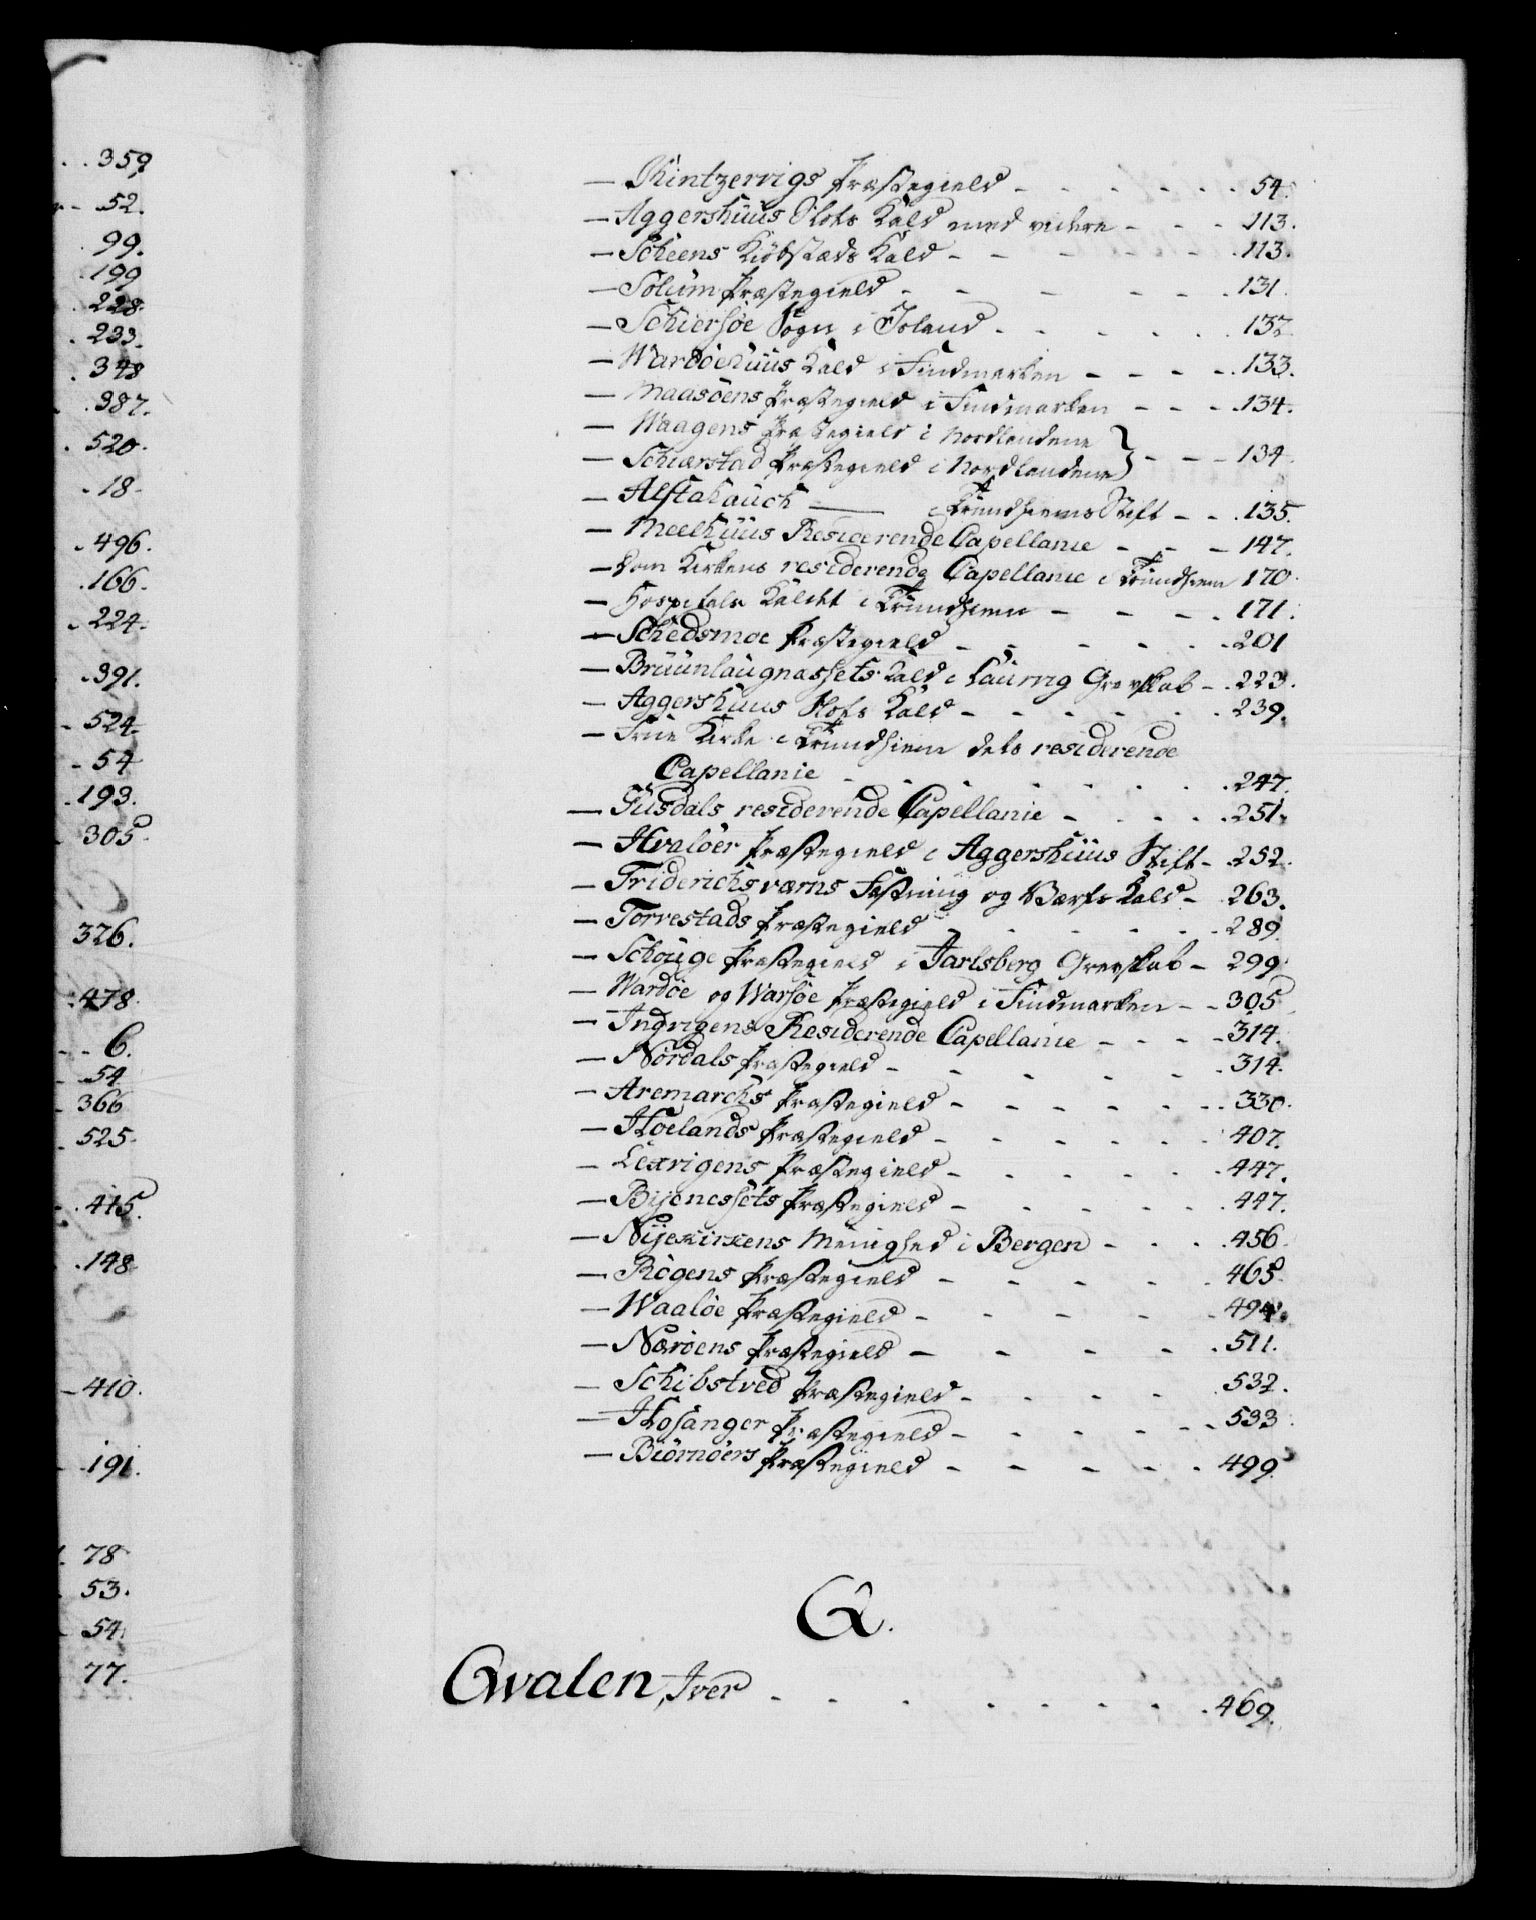 . . 359
- 52.
99.
. 199
. 228.
. 233.
. 348
. 387.
. 520.
. 18.
. 496.
. 166.
. 224.
. 391.
- 524.
- 54
. 193.
305.
326.
. 478.
- - 6.
- 54
- 366
- 525.
- . 415.
. 148
- 410.
- . 191.
78
53.
54.
77.
— Kintzervigs Præstegield - - - - - - 54.
— Aggershuus Slots Kald med videre - - - 113.
— Scheens Kiøbstæds Kald - - - - - . 113.
— Solum Præstegield - - - - - . 131.
— Schiersøe Sogn i Island - - - - - . 132
— Wardøehuus Kald i Findmarken - - - - . 133.
— Maasøens Præstegield i Findmarken - - - . 134.
— Waagens Præstegield i Nordlandene }
— Schierstad Præstegield i Nordlandene } - - - 134.
— Alstahauch —— i Trundhiems Stift - - . 135.
— Meelhuus Residerende Capellanie - - - 147.
— Dom Kirkens residerende Capellanie i Trundhiem 170.
— Hospitals Kaldet i Trundhiem - - - . 171.
— Schedsmoe Præstegield - - - - - . 201
— Bruunlaugnæssets Kald i Laurvig Grevskab - . 223.
— Aggershuus Slots Kald - - - - - . 239.
— Frue Kirke i Trundhiem dets residerende
Capellanie - - - - - - . 247.
— Gusdals residerende Capellanie - - - . 251.
— Hvaløer Præstegield i Aggershuus Stift - . 252.
— Friderichsværns Festning og Værfts Kald - . 263.
— Torvestads Præstegield - - - - - . 289.
— Schouge Præstegield i Jarlsberg Grevskab - 299.
— Wardøe og Warsøe Præstegield i Findmarken - - 305.
— Indvigens Residerende Capellanie - - - - 314.
— Nordals Præstegield - - - - - . 314.
— Aremarchs Præstegield - - - - - . 330.
— Høelands Præstegield - - - - - . 407.
— Lexvigens Præstegield - - - - - . 447.
— Byenessets Præstegield - - - - - . 447.
— Nyekirkens Menighed i Bergen - - - . 456
— Røgens Præstegield - - - - - . 465.
— Waaløe Præstegield - - - - - . 494.
— Nærøens Præstegield - - - - . 511.
— Schibstved Præstegield - - - - . 532.
— Hosanger Præstegield - - - - - . 533
— Biørnøers Præstegield - - - - . 499.
Q.
Qvalen, Iver - - - - - - - . 469.